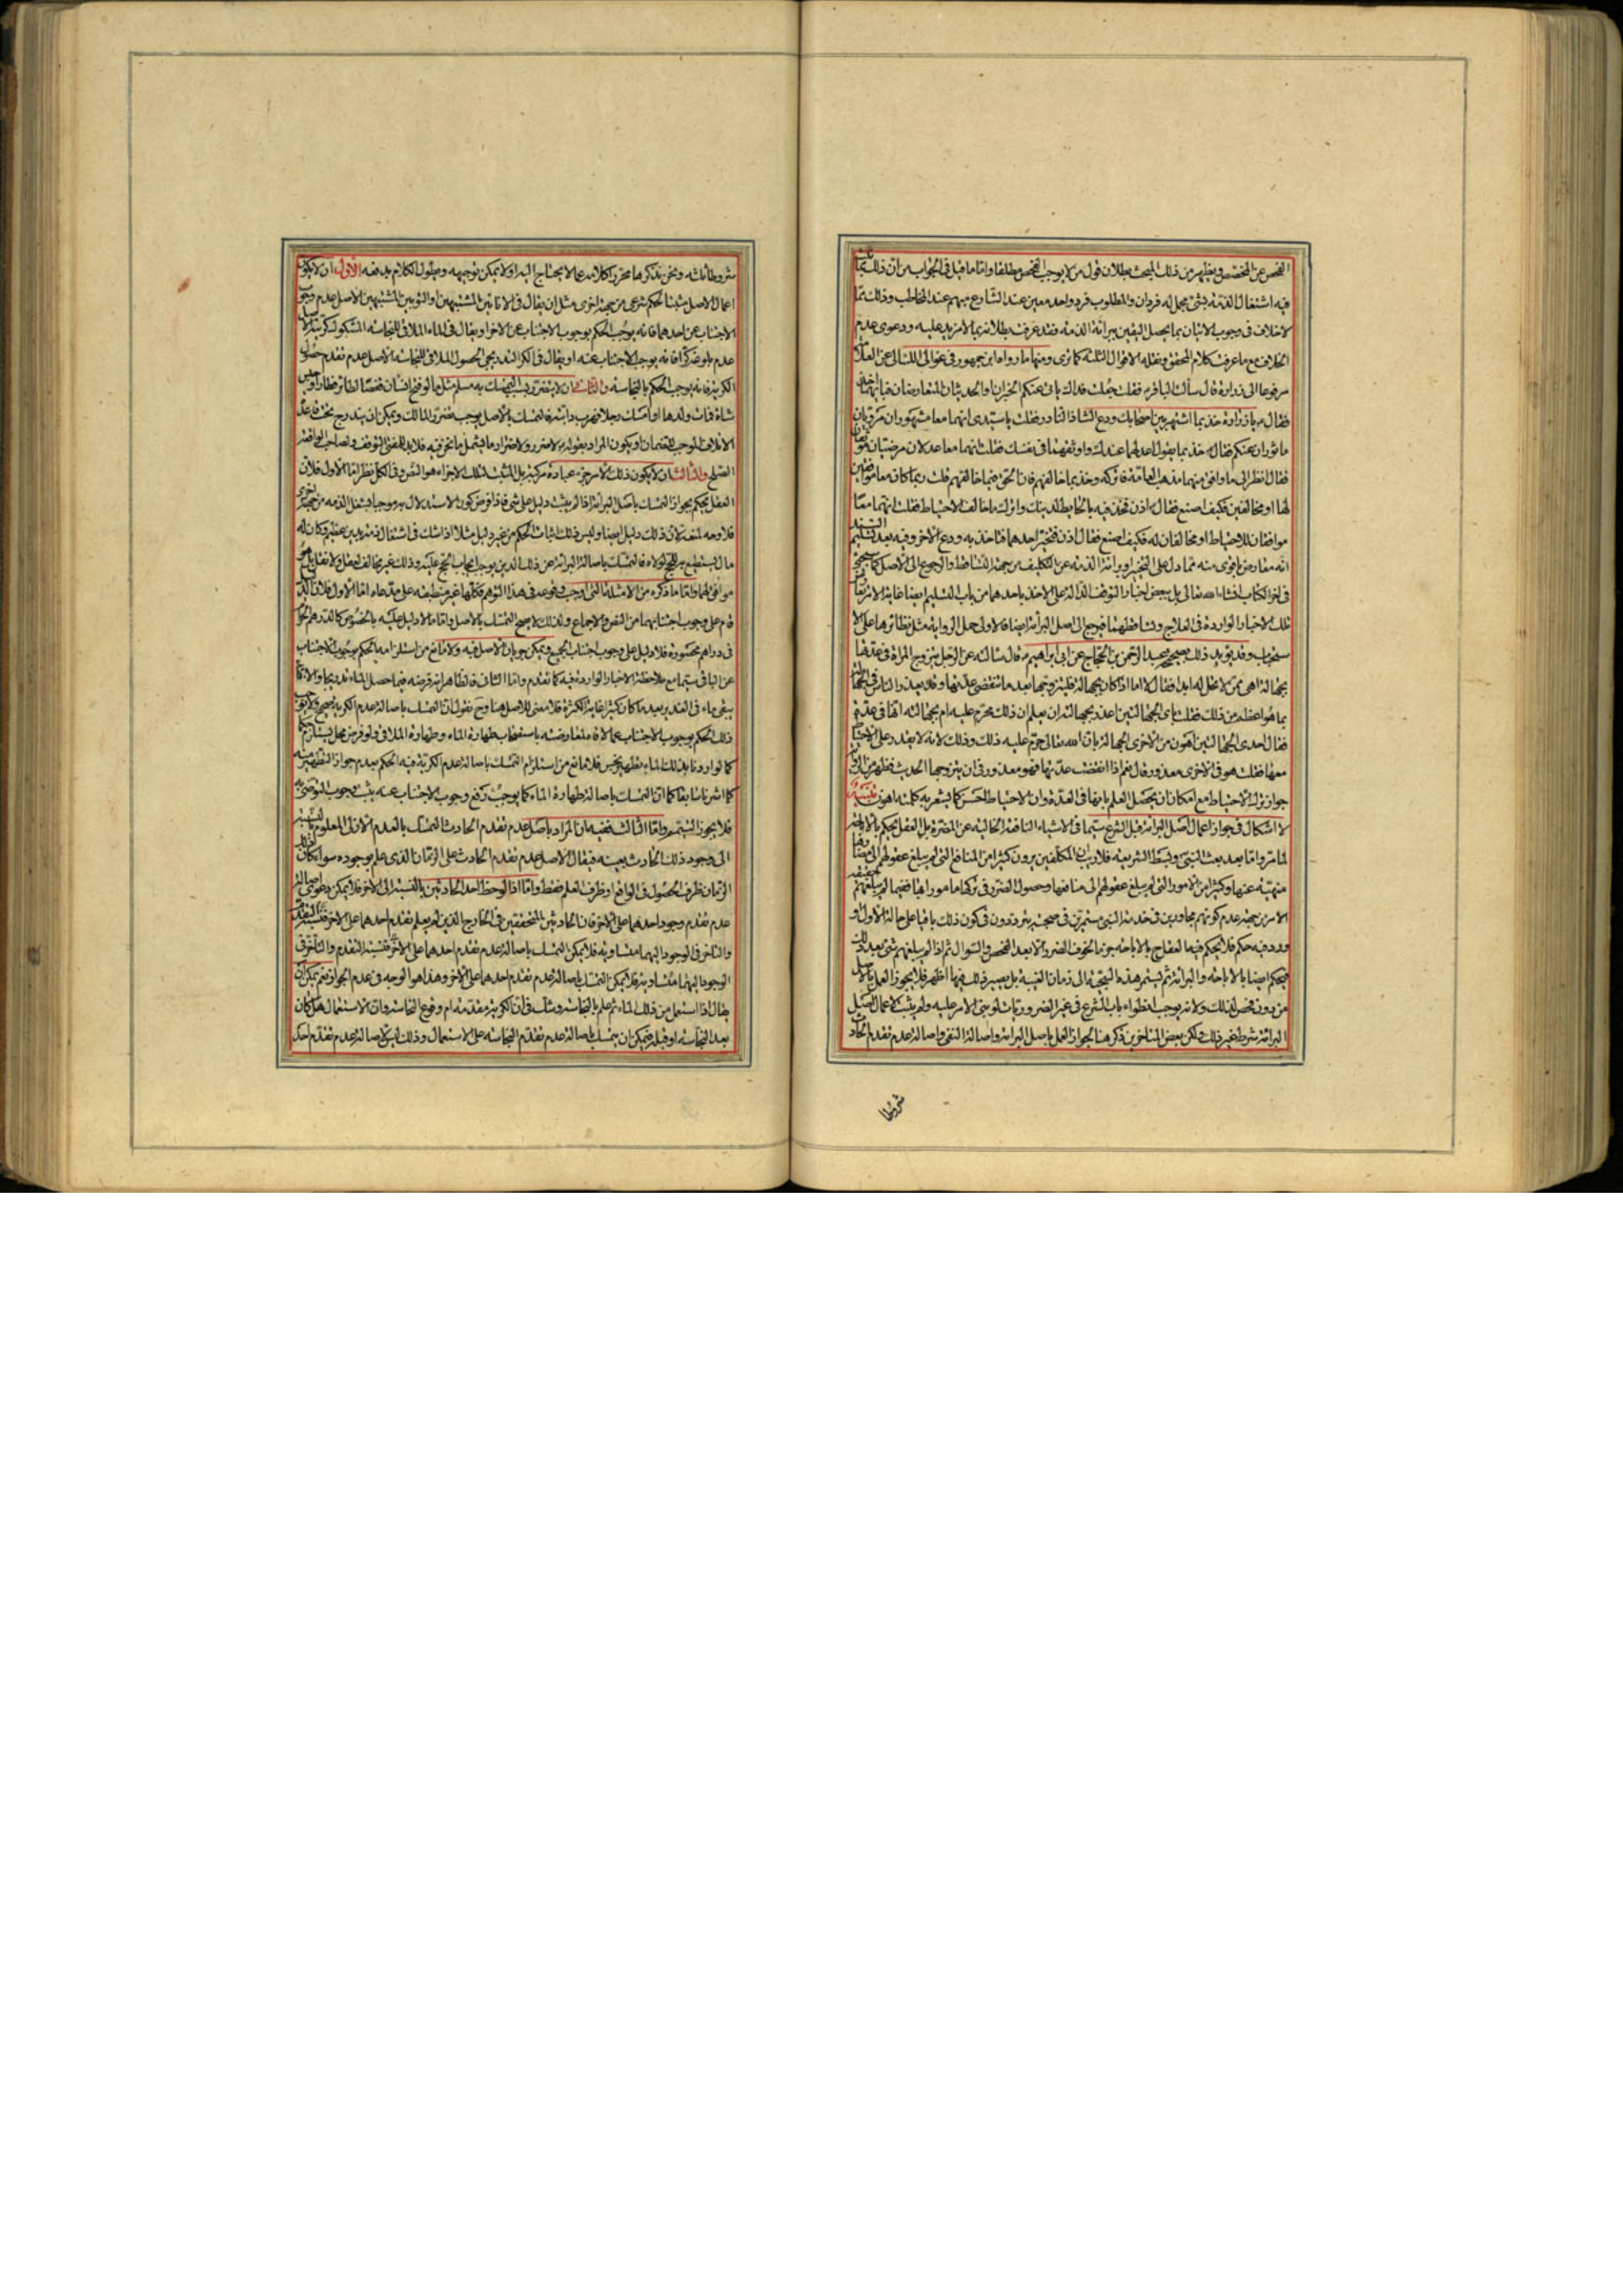 الفحص عن المخصص ويظهر من ذلك المبحث بطلان قول من لا يوجب الفحص مطلقا واما ما قيل في الجواب من ان ذلك مما ثبت
فيه اشتغال الذمة بشئ مجمل له فردان والمطلوب فرد واحد معين عند الشارع مبهم عند المخاطب وذلك مما
لا خلاف في وجوب الاتيان بما يحصل اليقين ببرائة الذمة فقد عرفت بطلانه بما لا مزيد عليه ودعوى عدم
الخلاف مع ما عرفت كلام المحقق ونقله الاقوال الثلثة كما ترى ومنها ما رواه ابن جمهور في غوالي اللئالي عن العلامة
مرفوعا الى زرارة قال سألت الباقر فقلت جعلت فداك ياتي عنكم الخبران او الحديثان المتعارضان فبايهما آخذ
فقال يا زرارة خذ بما اشتهر بين اصحابك ودع الشاذ النادر فقلت يا سيدي انهما معا مشهوران مرويان
ماثوران عنكم فقال خذ بما يقول اعدلهما عندك واوثقهما في نفسك فقلت انهما معا عدلان مرضيان موثقان
فقال انظر الى ما وافق منهما مذهب العامة فاتركه وخذ بما خالفهم فان الحق فيما خالفهم قلت ربما كان معا موافقين
لها او مخالفين فكيف اصنع فقال اذن فخذ بما فيه الحائطة لدينك واترك ما خالف الاحتياط فقلت انهما معا
موافقان للاحتياط او مخالفان له فكيف اصنع فقال اذن فتخير احدهما فتاخذ به ودع الاخر وفيه بعد تسليم السند
انه معارض باقوى منه مما دل على التخيير او برائة الذمة عن التكليف من جهة التساقط والرجوع الى الاصل كما سيجئ
في اخر الكتاب انشاء الله تعالى بل ببعض اخبار التوقف الدالة على الاخذ باحدهما من باب التسليم ايضا غاية الامر تعارض
تلك الاخبار الواردة في العلاج وتساقطهما فيرجع الى اصل البرائة ايضا فالاولى حمل الرواية مثل نظائرها على الا
ستحباب وقد يؤيد ذلك بصحيحة عبد الرحمن بن الحجاج عن ابي ابراهيم قال سالته عن الرجل يتزوج المراة في عدتها
بجهالة اهي ممن لا تحل له ابدا فقال لا اما اذا كان بجهالة فليتزوجها بعد ما تنقضي عدتها وقد يعذر الناس في الجهالة
بما هو اعظم من ذلك فقلت باي الجهالتين اعذر بجهالته ان يعلم ان ذلك محرم عليه ام بجهالته انها في عدة
فقال احدى الجهالتين اهون من الاخرى الجهالة بان الله تعالى حرم عليه ذلك وذلك لانه لا يقدر على الاحتياط
معها فقلت هو في الاخرى معذور قال نعم اذا انقضت عدتها فهو معذور في ان يتزوجها الحديث فظهر من الرواية
جواز ترك الاحتياط مع امكان ان يحصل العلم بانها في العدة وان الاحتياط احسن كما يشعر به كلمة اهون تنبيه
لا اشكال في جواز اعمال اصل البرائة قبل الشرع سيما في الاشياء النافعة الخالية عن المضرة بل العقل يحكم بالاباحة
لما مر واما بعد بعث النبي وبسط الشريعة فلا ريب ان المكلفين يرون كثيرا من المنافع التي لم يبلغ عقولهم الى مضارها
منهية عنها وكثيرا من الامور التي لم يبلغ عقولهم الى منافعها وحصول الضرر في تركها مامورا بها فيما لم يبلغهم
الامر من جهة عدم كونهم مجاورين في خدمة النبي مستمرين في صحبته يترددون في كون ذلك باقيا على حالة الاول او
ورد فيه حكم فلا يحكم فيها العقل ح بالاباحة جزما لخوف الضرر الا بعد الفحص والسؤال ثم اذا لم يبلغهم شئ بعد ذلك
فيحكم ايضا بالاباحة والبرائة ثم يستمر هذه السجية الى زمان الغيبة بل يصير ذلك فيها اظهر فلا يجوز العمل بالاصل
من دون فحص لذلك ولانه يوجب انطواء باب الشرع في غير الضروريات لو بني الامر عليه ولم يثبت لاعمال اصل
البرائة شرط غير ذلك ولكن بعض المتاخرين ذكر هنا لجواز العمل باصل البرائة واصالة النفي واصالة عدم تقدم الحادث
شروطا
شروطا ثلثه ونحن نذكرها محررا كلامه عما لا يحتاج اليه او لا يمكن توجيهه ومحصول الكلام يدفعه الاول ان لا يكون
اعمال الاصل مثبتا لحكم شرعي من جهة اخرى مثل ان يقال في الانائين المشتبهين او الثوبين المشتبهين الاصل عدم وجوب
الاجتناب عن احدهما فانه يوجب الحكم بوجوب الاجتناب عن الاخر او يقال في الماء الملاقي للنجاسة المشكوك كريته الاصل
عدم بلوغه كرا فانه يوجب الاجتناب عنه او يقال في الكر التدريجي الحصول الملاقي للنجاسة الاصل عدم تقدم حصول
الكرية فانه يوجب الحكم بالنجاسة والثاني ان لا يتضرر بسبب التمسك به مسلم مثل ما لو فتح انسان قفصا لطائر فطار او حبس
شاة فمات ولدها او امسك رجلا فهرب دابته فالتمسك بالاصل يوجب ضرر المالك ويمكن ان يندرج تحت قاعدة
الاتلاف الموجب للضمان او يكون المراد بقوله لا ضرر ولا ضرار ما يشمل ما نحن فيه فلا بد للمفتي التوقف ولصاحب الواقعة
الصلح والثالث ان لا يكون ذلك الامر جزء عبادة مركبة بل المثبت لتلك الاجزاء هو النص وفي الكل نظر اما الاول فلان
العقل يحكم بجواز التمسك باصل البرائة اذا لم يثبت دليل على شئ فاذا فرض كون الاستدلال به موجبا لشغل الذمة من جهة اخرى
فلا وجه لمنعه لان ذلك دليل ايضا وليس ذلك اثبات الحكم من غير دليل مثلا اذا شك في اشتغال ذمته بدين عظيم وكان له
مال يستطيع به للحج لولاه فالتمسك باصالة البرائة عن ذلك الدين يوجب ايجاب الحج عليه وذلك غير مخالف لعقل ولا نقل بل هو
موافق لهما واما ما ذكره من الامثلة التي اوجبت وقوعه في هذا التوهم فكلها غير منطبقة على مدعاه اما الاول فلان الدليل
قام على وجوب اجتنابهما من النص والاجماع ولذلك لا يصح التمسك بالاصل واما ما لا دليل عليه بالخصوص كالدرهم الحرام
في دراهم محصورة فلا دليل على وجوب اجتناب الجميع ويمكن جريان الاصل فيه ولا مانع من استلزامه الحكم بوجوب الاجتناب
عن الباقي سيما مع ملاحظة الاخبار الواردة فيه كما تقدم واما الثاني فالظاهر انه فرضه فيما حصل الماء تدريجا والا فكما
يبقى ماء في الغدير بعد ما كان كثيرا غاية الكثرة فلا معنى للاصل هنا وح نقول ان التمسك باصالة عدم الكرية صحيح ولا يوجب
ذلك الحكم بوجوب الاجتناب عما لاقاه لمعارضته باستصحاب طهارة الماء وطهارة الملاقي ولو فرض محل يستلزم حكما
كما لو اردنا بذلك الماء تطهير نجس فلا مانع من استلزام التمسك باصالة عدم الكرية فيه الحكم بعدم جواز التطهير منه
كما اشرنا سابقا كما ان التمسك باصالة طهارة الماء كما يوجب رفع وجوب الاجتناب عنه يثبت وجوب التوضي به
فلا يجوز التيمم واما الثالث ففيه ان المراد باصل عدم تقدم الحادث التمسك بالعدم الازلي المعلوم بالنسبة
الى وجود ذلك الحادث بعينه فيقال الاصل عدم تقدم الحادث على الزمان الذي علم بوجوده سواء كان ذلك
الزمان ظرف الحصول في الواقع او ظرف العلم فقط واما اذا لوحظ احد الحادثين بالنسبة الى الاخر فلا يمكن دعوى اصالة
عدم تقدم وجود احدهما على الاخر فان الحادثين المتحققين في الخارج الذين لم يعلم تقدم احدهما على الاخر فنسبة التقدم
والتاخر في الوجود اليهما متساوية فلا يمكن التمسك باصالة عدم تقدم احدهما على الاخر فنسبة التقدم والتاخر في
الوجود اليهما متساوية فلا يمكن التمسك باصالة عدم تقدم احدهما على الاخر وهذا هو الوجه في عدم الجواز نعم يمكن ان
يقال اذا استعمل من ذلك الماء ثم علم بالنجاسة وشك في ان الكرية مقدمة ام وقوع النجاسة وان الاستعمال هل كان
بعد النجاسة او قبله فيمكن ان يتمسك باصالة عدم تقدم النجاسة على الاستعمال وذلك ليس لاصالة عدم تقدم احد